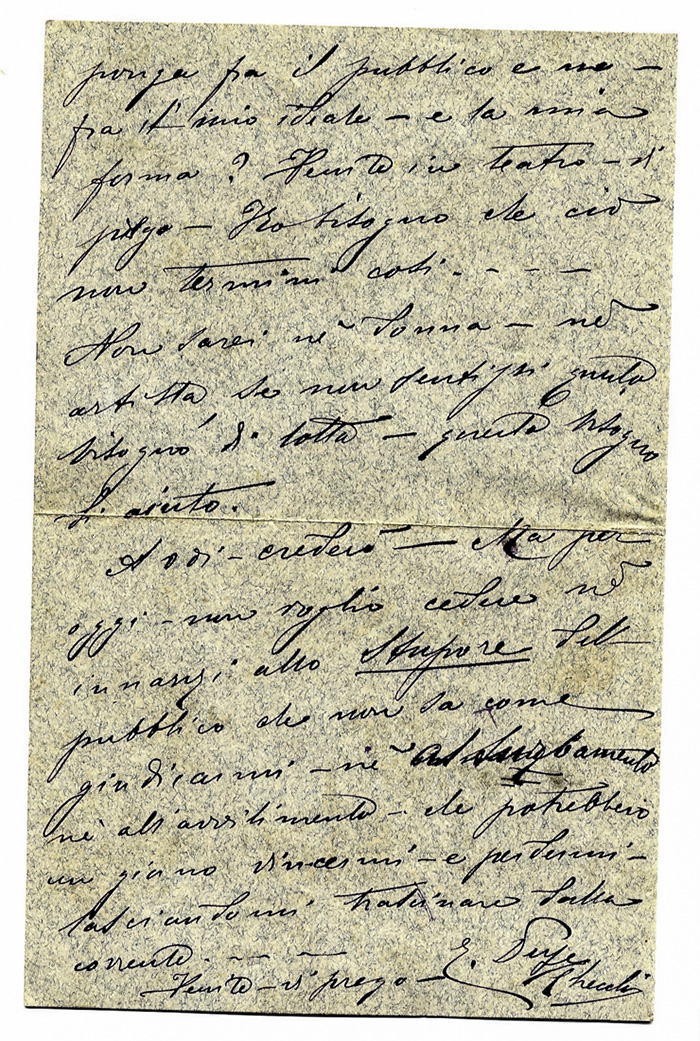 ponga fra il pubblico e me –
fra il mio ideale – e la mia
forma? Venite in teatro – vi
prego – Ho bisogno che ciò
non termini così. - - -
Non sarei nè donna – nè
artista, se non sentissi questo
bisogno di lotta – questo bisogno
di aiuto.
credere – Ma per
oggi – non voglio cedere nè
innanzi allo Stupore del
pubblico che non sa come
giudicarmi – nè al
nè all'avvilimento – che potrebbero
un giorno vincermi – e perdermi –
lasciandomi trascinare dalla
corrente. - - -
Venite – vi prego – E. Duse
Checchi